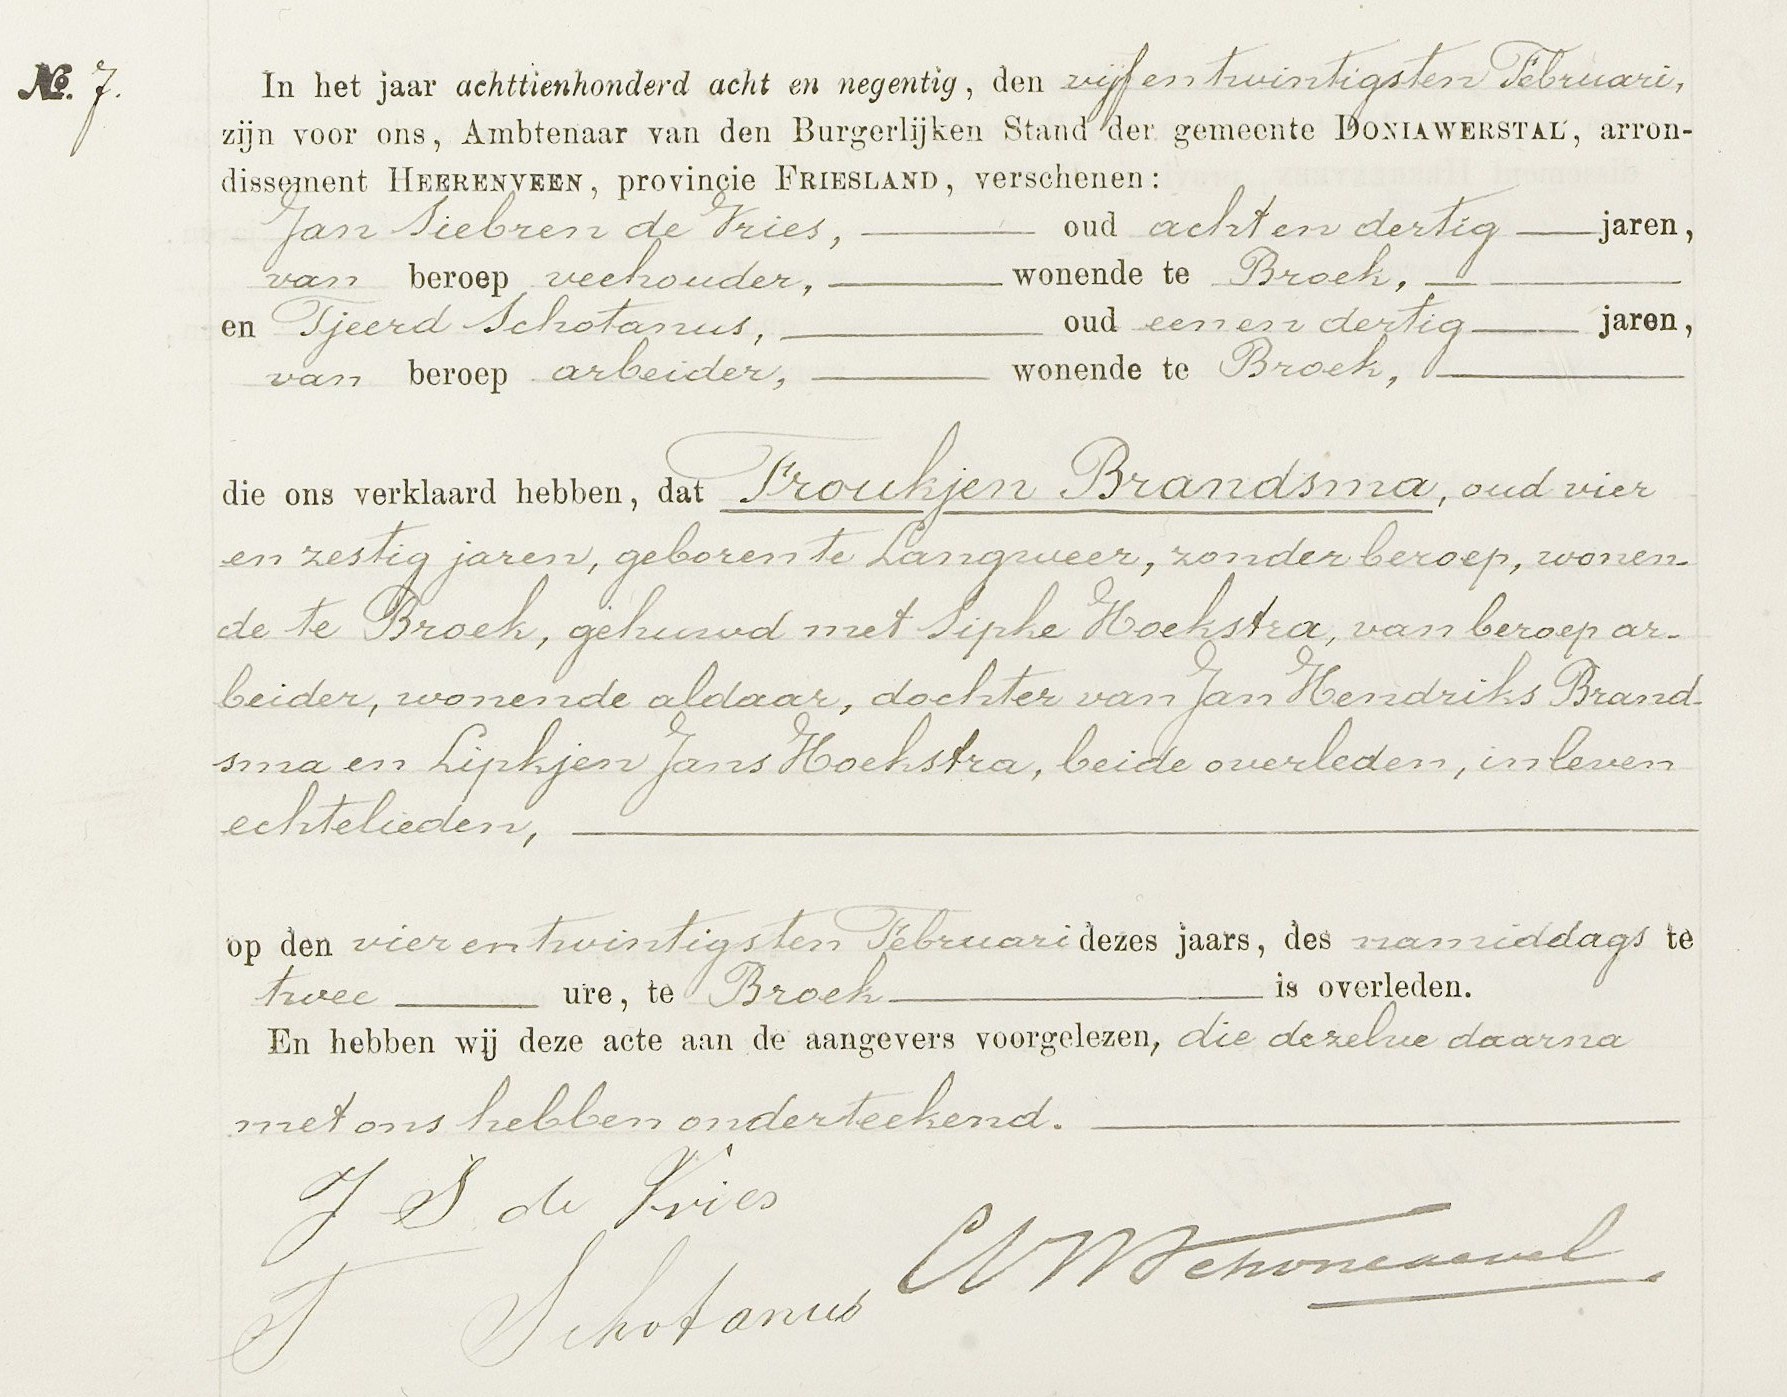 No. 7.
In het jaar achttienhonderd acht en negentig, den vijf en twintigsten Februari,
zijn voor ons, Ambtenaar van den Burgerlijken Stand der gemeente DONIAWERSTAL, arron-
dissement HEERENVEEN, provincie FRIESLAND, verschenen:
Jan Siebren de Vries, oud acht en dertig jaren,
van beroep veehouder, wonende te Broek,
en Tjeerd Schotanus, oud een en dertig jaren,
van beroep arbeider, wonende te Broek,
die ons verklaard hebben, dat Froukjen Brandsma, oud vier
en zestig jaren, geboren te Langweer, zonder beroep, wonen-
de te Broek, gehuwd met Sipke Hoekstra, van beroep ar-
beider, wonende aldaar, dochter van Jan Hendriks Brand-
sma en Lipkjen Jans Hoekstra, beide overleden, in leven
echtelieden,
op den vier en twintigsten Februari dezes jaars, des namiddags te
twee ure, te Broek is overleden.
En hebben wij deze acte aan de aangevers voorgelezen, die dezelve daarna
met ons hebben onderteekend.
J S de Vries
T Schotanus